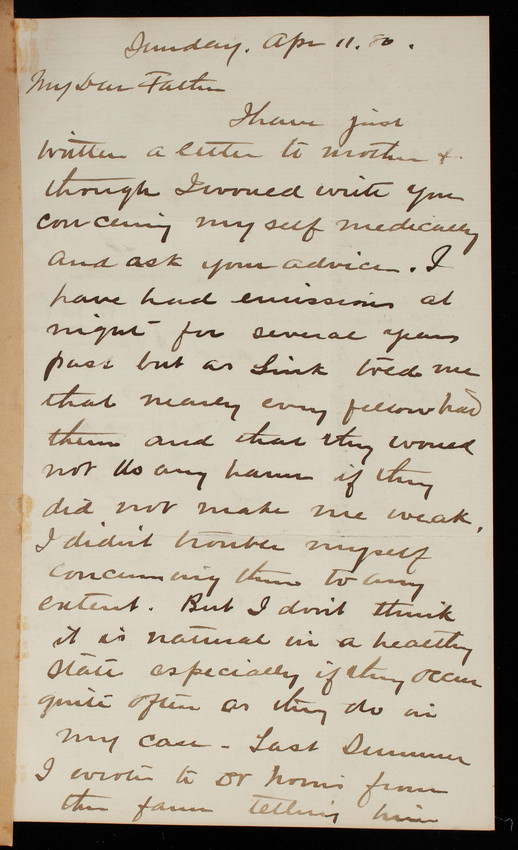 Sunday. Apr 11. 80.
My Dear Father
I have just
written a letter to mother &
though I would write you
concerning myself medically
and ask your advice. I
have had emissions at
night for several years
past but as Link told me
that nearly every fellow had
them and that they would
not do any harm if they
did not make me weak,
I didn't trouble myself
concerning them to any
extent. But I don't think
it is natural in a healthy
state especially if they occur
quite often as they do in
my case - Last Summer
I wrote to Dr Norris from
the farm telling him